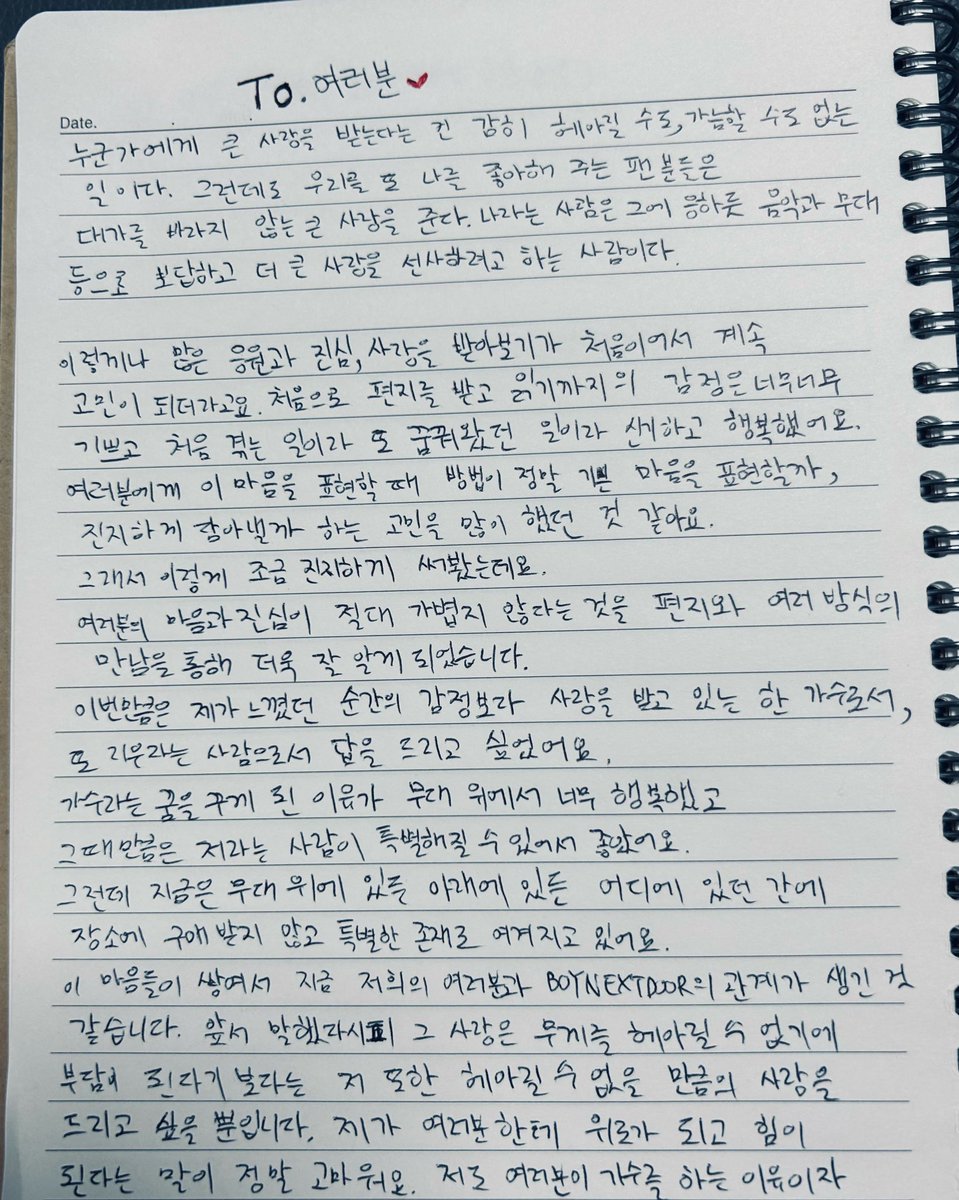 To. 여러분
Date.
누군가에게 큰 사랑을 받는다는 건 감히 헤아릴 수도, 가늠할 수도 없는
일이다. 그런데도 우리를 또 나를 좋아해 주는 팬분들은
대가를 바라지 않는 큰 사랑을 준다. 나라는 사람은 그에 응하듯 음악과 무대
등으로 보답하고 더 큰 사랑을 선사하려고 하는 사람이다.
이렇게나 많은 응원과 진심, 사랑을 받아보기가 처음이어서 계속
고민이 되더라고요. 처음으로 편지를 받고 읽기까지의 감정은 너무너무
기쁘고 처음 겪는 일이라 또 꿈꿔왔던 일이라 신기하고 행복했어요.
여러분에게 이 마음을 표현할 때 방법이 정말 기쁜 마음을 표현할까,
진지하게 담아낼까 하는 고민을 많이 했던 것 같아요.
그래서 이렇게 조금 진지하게 써봤는데요.
여러분의 마음과 진심이 절대 가볍지 않다는 것을 편지와 여러 방식의
만남을 통해 더욱 잘 알게 되었습니다.
이번만큼은 제가 느꼈던 순간의 감정보다 사랑을 받고 있는 한 가수로서,
또 리우라는 사람으로서 답을 드리고 싶었어요.
가수라는 꿈을 꾸게 된 이유가 무대 위에서 너무 행복했고
그때만큼은 저라는 사람이 특별해질 수 있어서 좋았어요.
그런데 지금은 무대 위에 있든 아래에 있든 어디에 있던 간에
장소에 구애 받지 않고 특별한 존재로 여겨지고 있어요.
이 마음들이 쌓여서 지금 저희의 여러분과 BOYNEXTDOOR의 관계가 생긴 것
같습니다. 앞서 말했다시피 그 사랑은 무게를 헤아릴 수 없기에
부담이 된다기 보다는 저 또한 헤아릴 수 없을 만큼의 사랑을
드리고 싶을 뿐입니다. 제가 여러분한테 위로가 되고 힘이
된다는 말이 정말 고마워요. 저도 여러분이 가수를 하는 이유이자